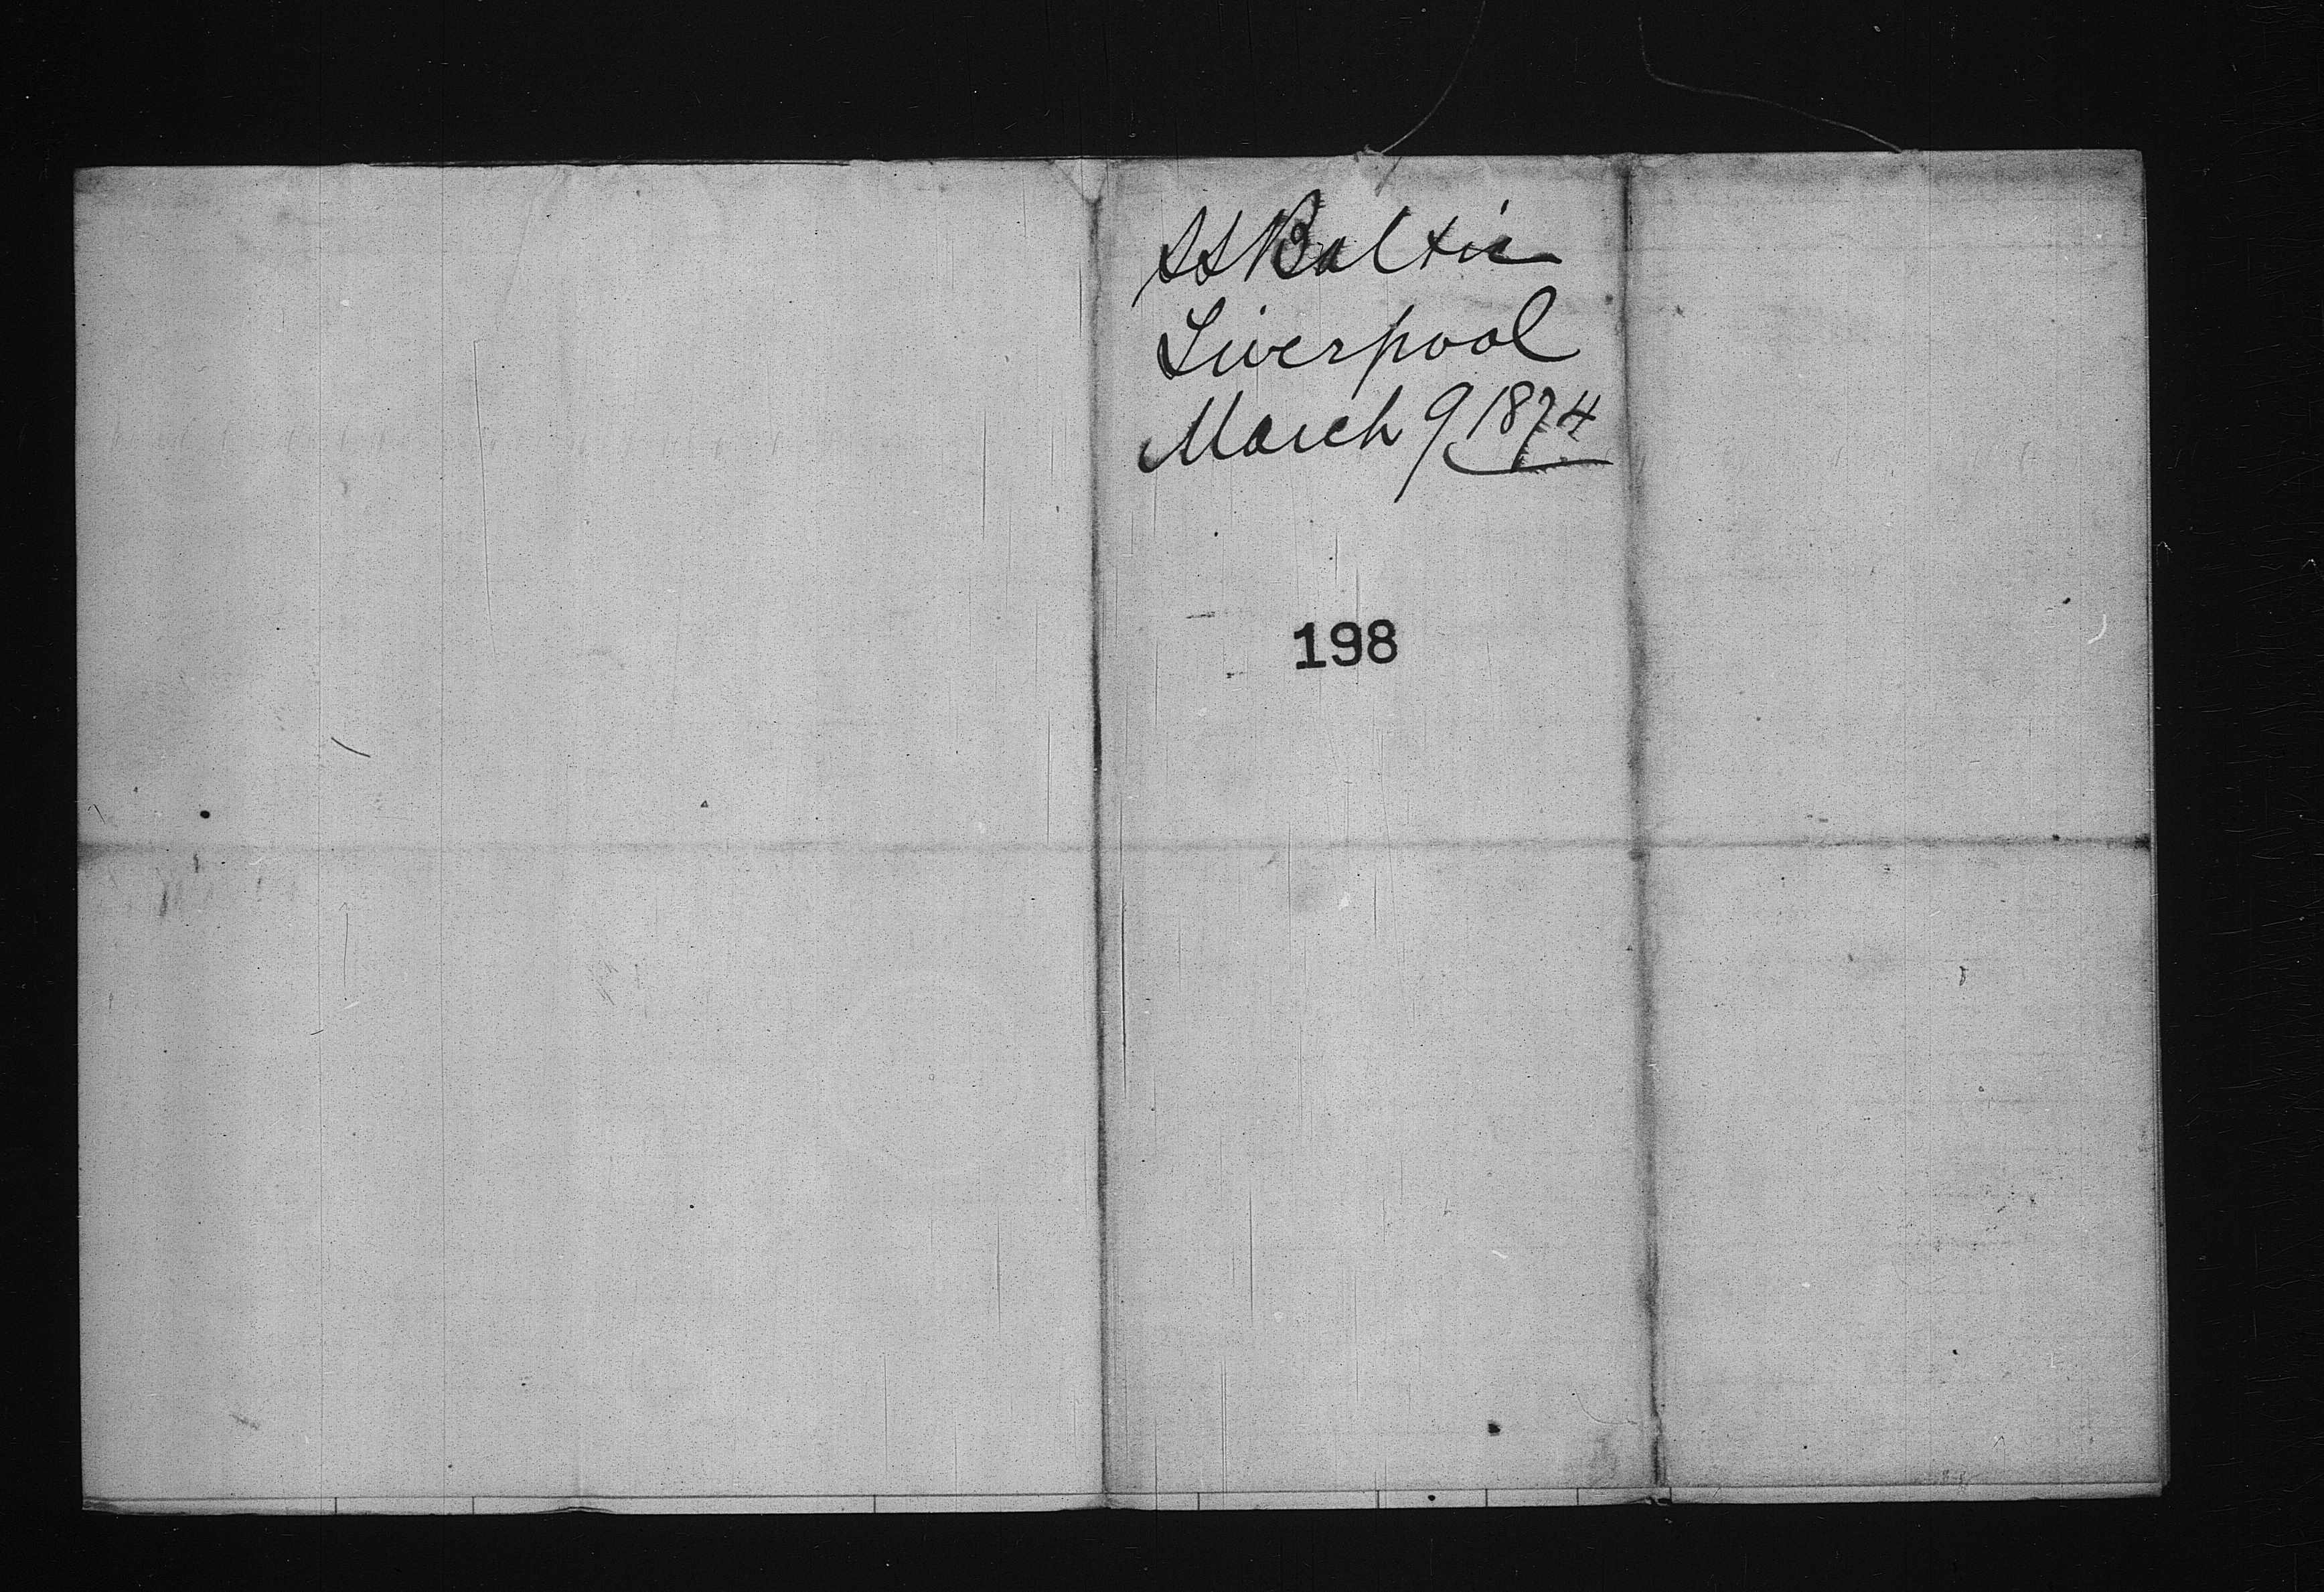 SS Baltic
Liverpool
March 9 1874
198